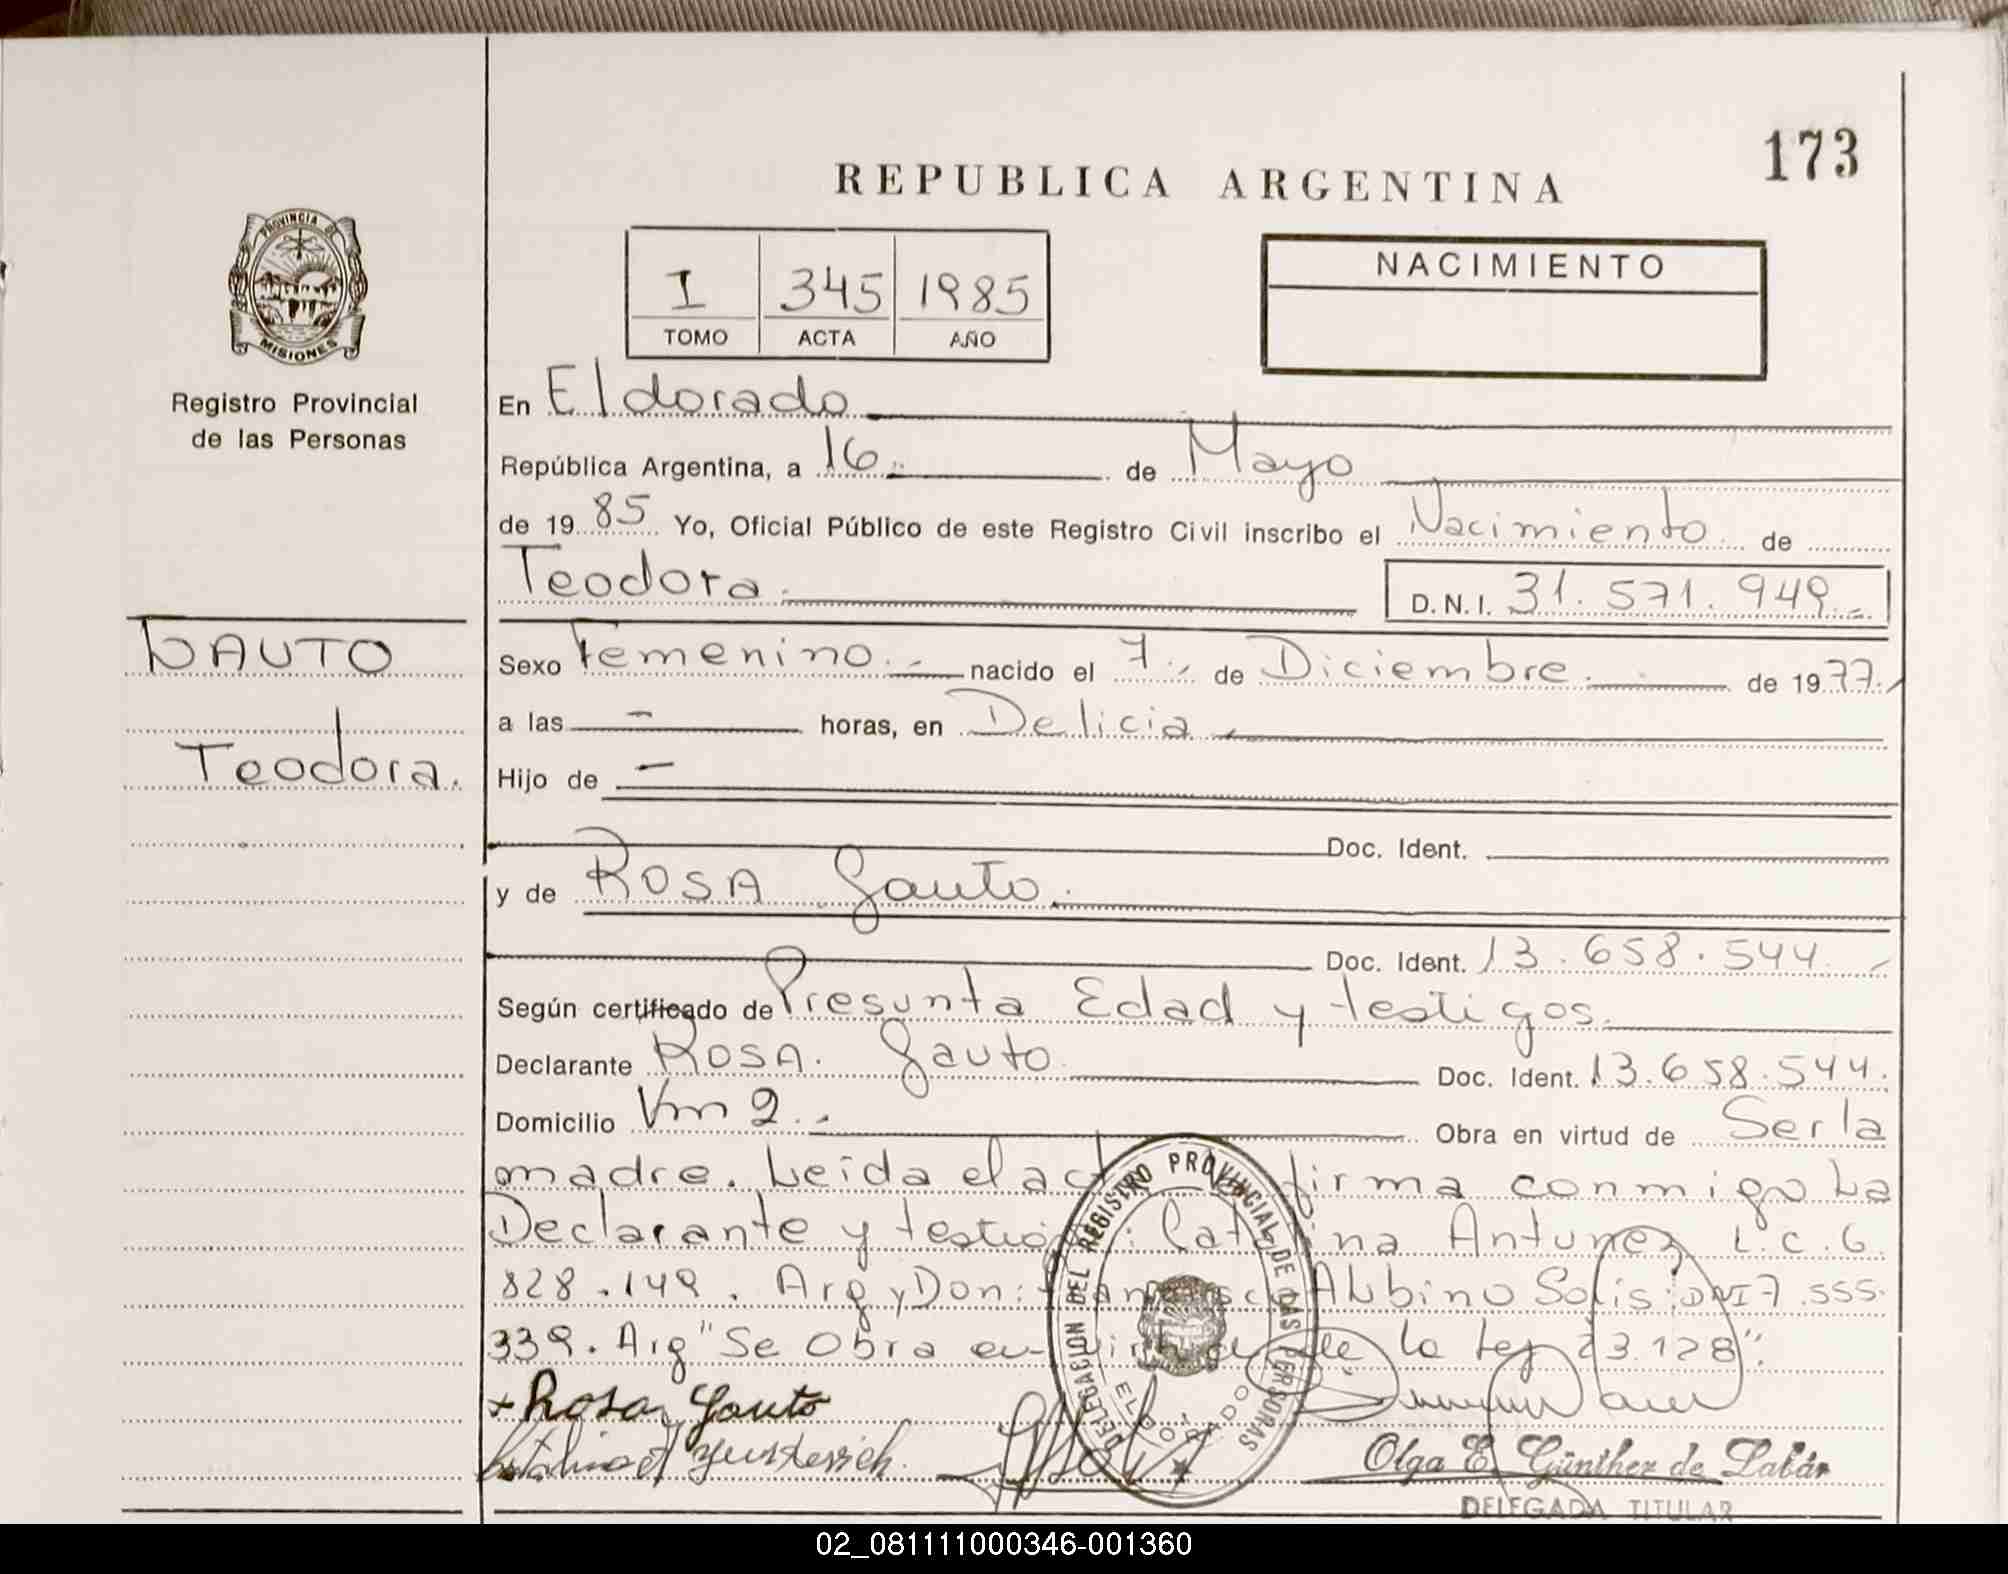 173
REPUBLICA ARGENTINA
PROVINCIA DE
MISIONES
Registro Provincial
de las Personas
I 345 1985
TOMO ACTA AÑO
NACIMIENTO
En Eldorado
República Argentina, a 16 de Mayo
de 1985 Yo, Oficial Público de este Registro Civil inscribo el Nacimiento de
Teodora D.N.I. 31.571.949
GAUTO
Teodora.
Sexo Femenino nacido el 7 de Diciembre de 1977
a las - horas, en Delicia
Hijo de -
Doc. Ident.
y de ROSA Gauto
Doc. Ident. 13.658.544
Según certificado de Presunta Edad y testigos
Declarante ROSA. Gauto Doc. Ident. 13.658.544.
Domicilio Km 2 Obra en virtud de Ser la
madre. Leida el acta firma conmigo La
Declarante y testigos: Catalina Antunez L.C. 6.
828.149. Arg y Don: Albino Solis: DNI 7.555.
339. Arg "Se Obra en virtud de la Ley 23.128".
+ Rosa Gauto
Olga E. Günther de Labár
DELEGADA TITULAR
DELEGACION DEL REGISTRO PROVINCIAL DE LAS PERSONAS
ELDORADO
02_081111000346-001360